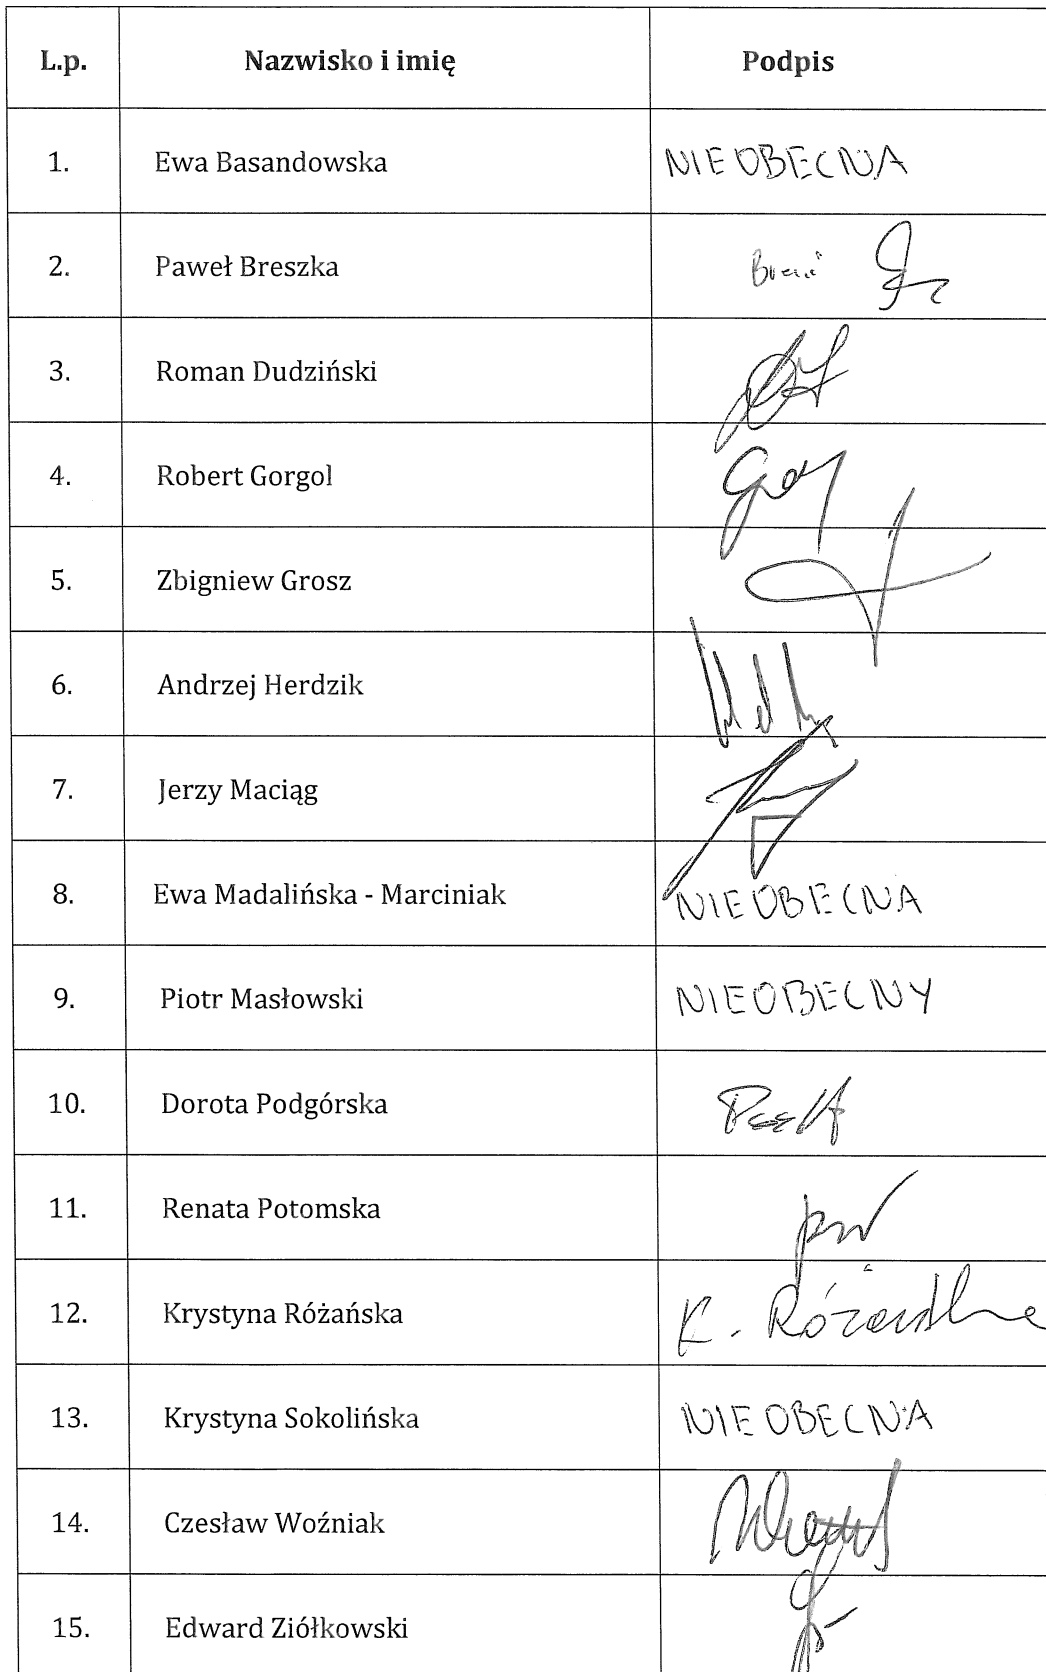 L.p. Nazwisko i imię Podpis
1. Ewa Basandowska NIEOBECNA
2. Paweł Breszka
3. Roman Dudziński
4. Robert Gorgol
5. Zbigniew Grosz
6. Andrzej Herdzik
7. Jerzy Maciąg
8. Ewa Madalińska - Marciniak NIEOBECNA
9. Piotr Masłowski NIEOBECNY
10. Dorota Podgórska
11. Renata Potomska
12. Krystyna Różańska K. Różańska
13. Krystyna Sokolińska NIEOBECNA
14. Czesław Woźniak
15. Edward Ziółkowski